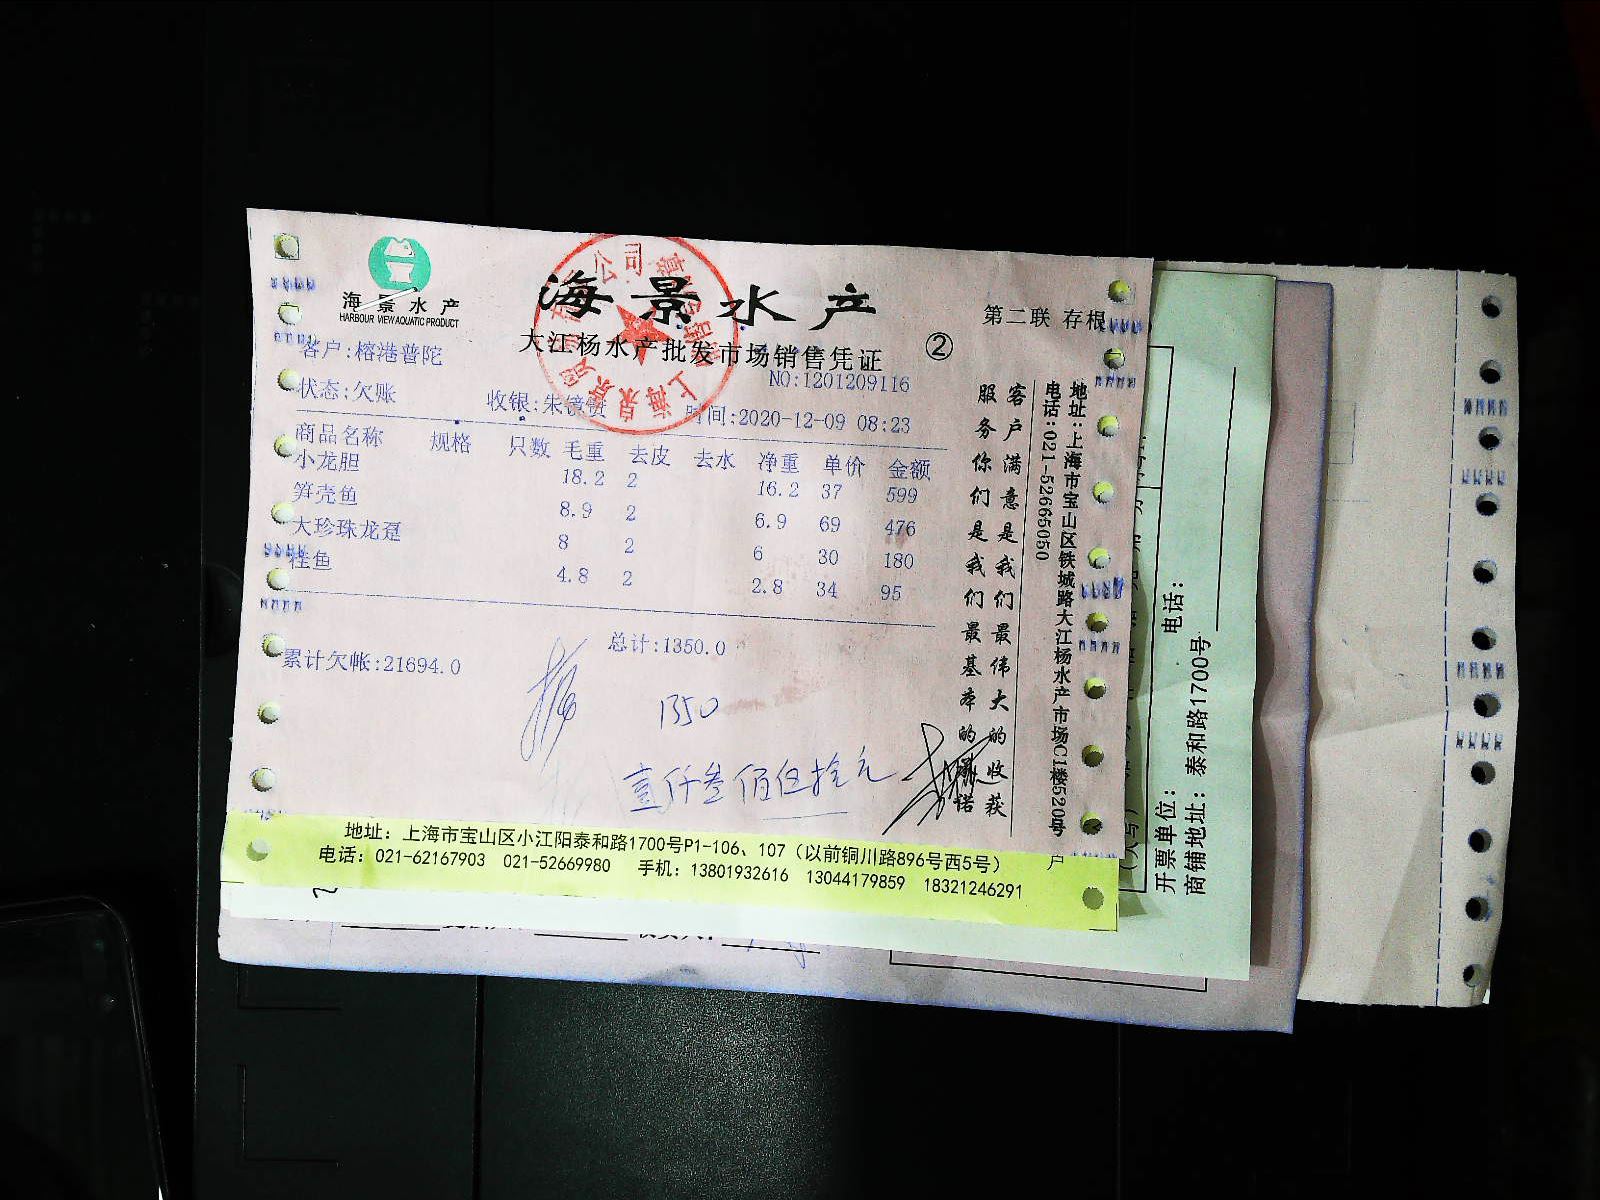 海景水产
HARBOUR VIEW AQUATIC PRODUCT
海景水产
大江杨水产批发市场销售凭证
②
第二联 存根
客户:榕港普陀
NO:1201209116
状态:欠账
收银:朱镜
时间:2020-12-09 08:23
商品名称 规格 只数 毛重 去皮 去水 净重 单价 金额
小龙胆 18.2 2 16.2 37 599
笋壳鱼 8.9 2 6.9 69 476
大珍珠龙趸 8 2 6 30 180
桂鱼 4.8 2 2.8 34 95
总计:1350.0
累计欠帐:21694.0
1350
壹仟叁佰伍拾元
客户满意是我们最伟大的收获
服务你们是我们最基本的承诺
地址:上海市宝山区铁城路大江杨水产市场C1楼520号
电话:021-52665050
地址：上海市宝山区小江阳泰和路1700号P1-106、107（以前铜川路896号西5号）
电话：021-62167903 021-52669980 手机：13801932616 13044179859 18321246291
户
电话：
开票单位：
商铺地址：泰和路1700号